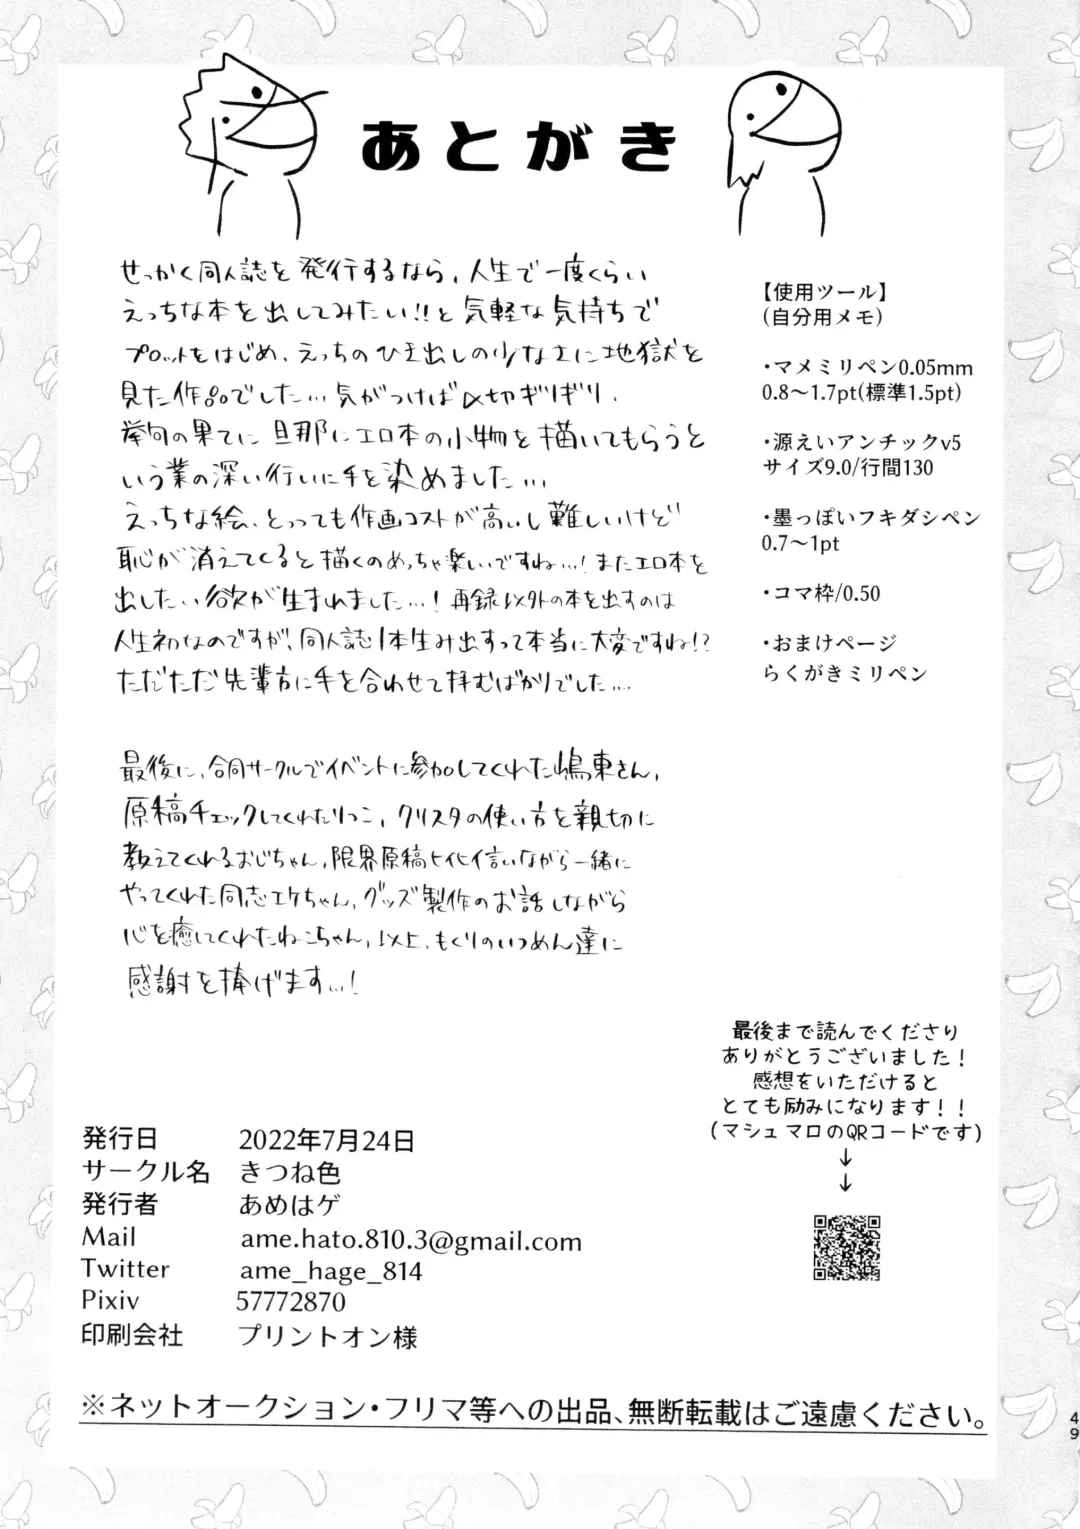 あとがき
せっかく同人誌を発行するなら、人生で一度くらい
えっちな本を出してみたい!!と気軽な気持ちで
プロットをはじめ、えっちのひき出しの少なさに地獄を
見た作品でした…気がつけば〆切ギリギリ、
挙句の果てに旦那にエロ本の小物を描いてもらうと
いう業の深い行いに手を染めました…
えっちな絵、とっても作画コストが高いし難しいけど
恥が消えてくると描くのめっちゃ楽しいですね…!またエロ本を
出したい欲が生まれました…!再録以外の本を出すのは
人生初なのですが、同人誌1本生み出すって本当に大変ですね!?
ただただ先輩方に手を合わせて拝むばかりでした…
最後に、合同サークルでイベントに参加してくれた嶋東さん、
原稿チェックしてくれたりつこ、クリスタの使い方を親切に
教えてくれるおじちゃん、限界原稿ヒヒ言いながら一緒に
やってくれた同志エケちゃん、グッズ製作のお話しながら
心を癒してくれたねこちゃん、以上、もぐりのいつめん達に
感謝を捧げます…!
【使用ツール】
(自分用メモ)
・マメミリペン0.05mm
0.8〜1.7pt(標準1.5pt)
・源えいアンチックv5
サイズ9.0/行間130
・墨っぽいフキダシペン
0.7〜1pt
・コマ枠/0.50
・おまけページ
らくがきミリペン
最後まで読んでくださり
ありがとうございました!
感想をいただけると
とても励みになります!!
(マシュマロのQRコードです)
↓
↓
発行日 2022年7月24日
サークル名 きつね色
発行者 あめはゲ
Mail ame.hato.810.3@gmail.com
Twitter ame_hage_814
Pixiv 57772870
印刷会社 プリントオン様
※ネットオークション・フリマ等への出品、無断転載はご遠慮ください。
49